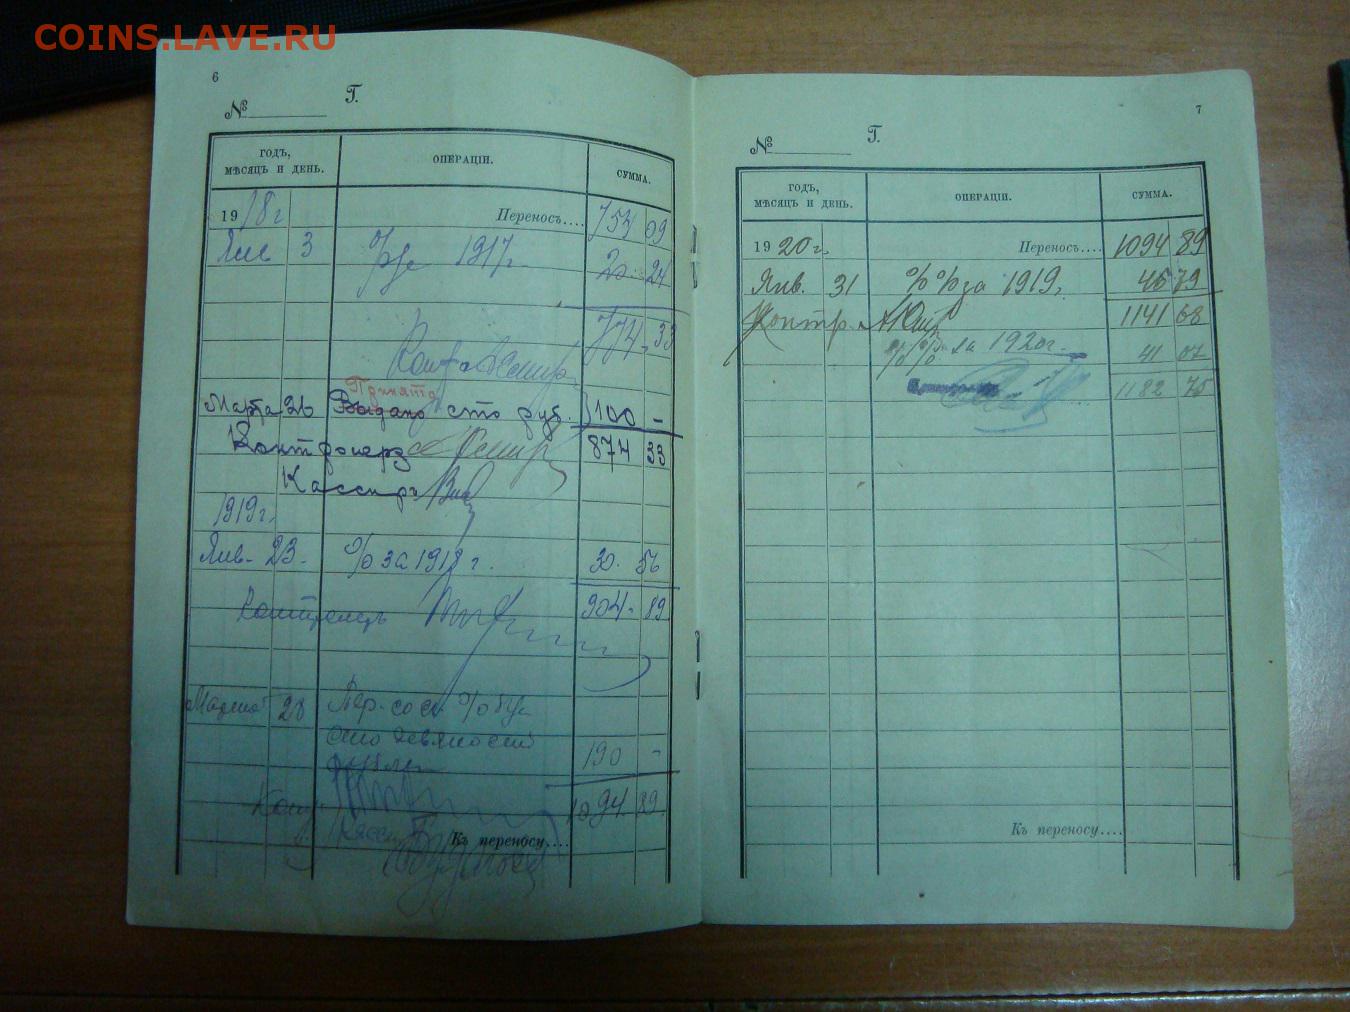 COINS.LAVE.RU
6
№ Г.
ГОДЪ, МѢСЯЦЪ И ДЕНЬ. ОПЕРАЦІИ. СУММА.
1918 г Переносъ.... 754 09
Янв 3 1917 г. 20 24
774 33
Принято
Марта 26 Выдано сто руб. 100 -
Контролеръ 874 33
Кассиръ
1919 г.
Янв. 23. % за 1918 г. 30. 56
Контролеръ 904. 89
28
сто девяносто
190 -
1094 89
Къ переносу....
7
№ Г.
ГОДЪ, МѢСЯЦЪ И ДЕНЬ. ОПЕРАЦІИ. СУММА.
1920 г. Переносъ.... 1094 89
Янв. 31 %% за 1919 г. 46 79
Контр. 1141 68
%% за 1920 г. 41 07
1182 75
Къ переносу....